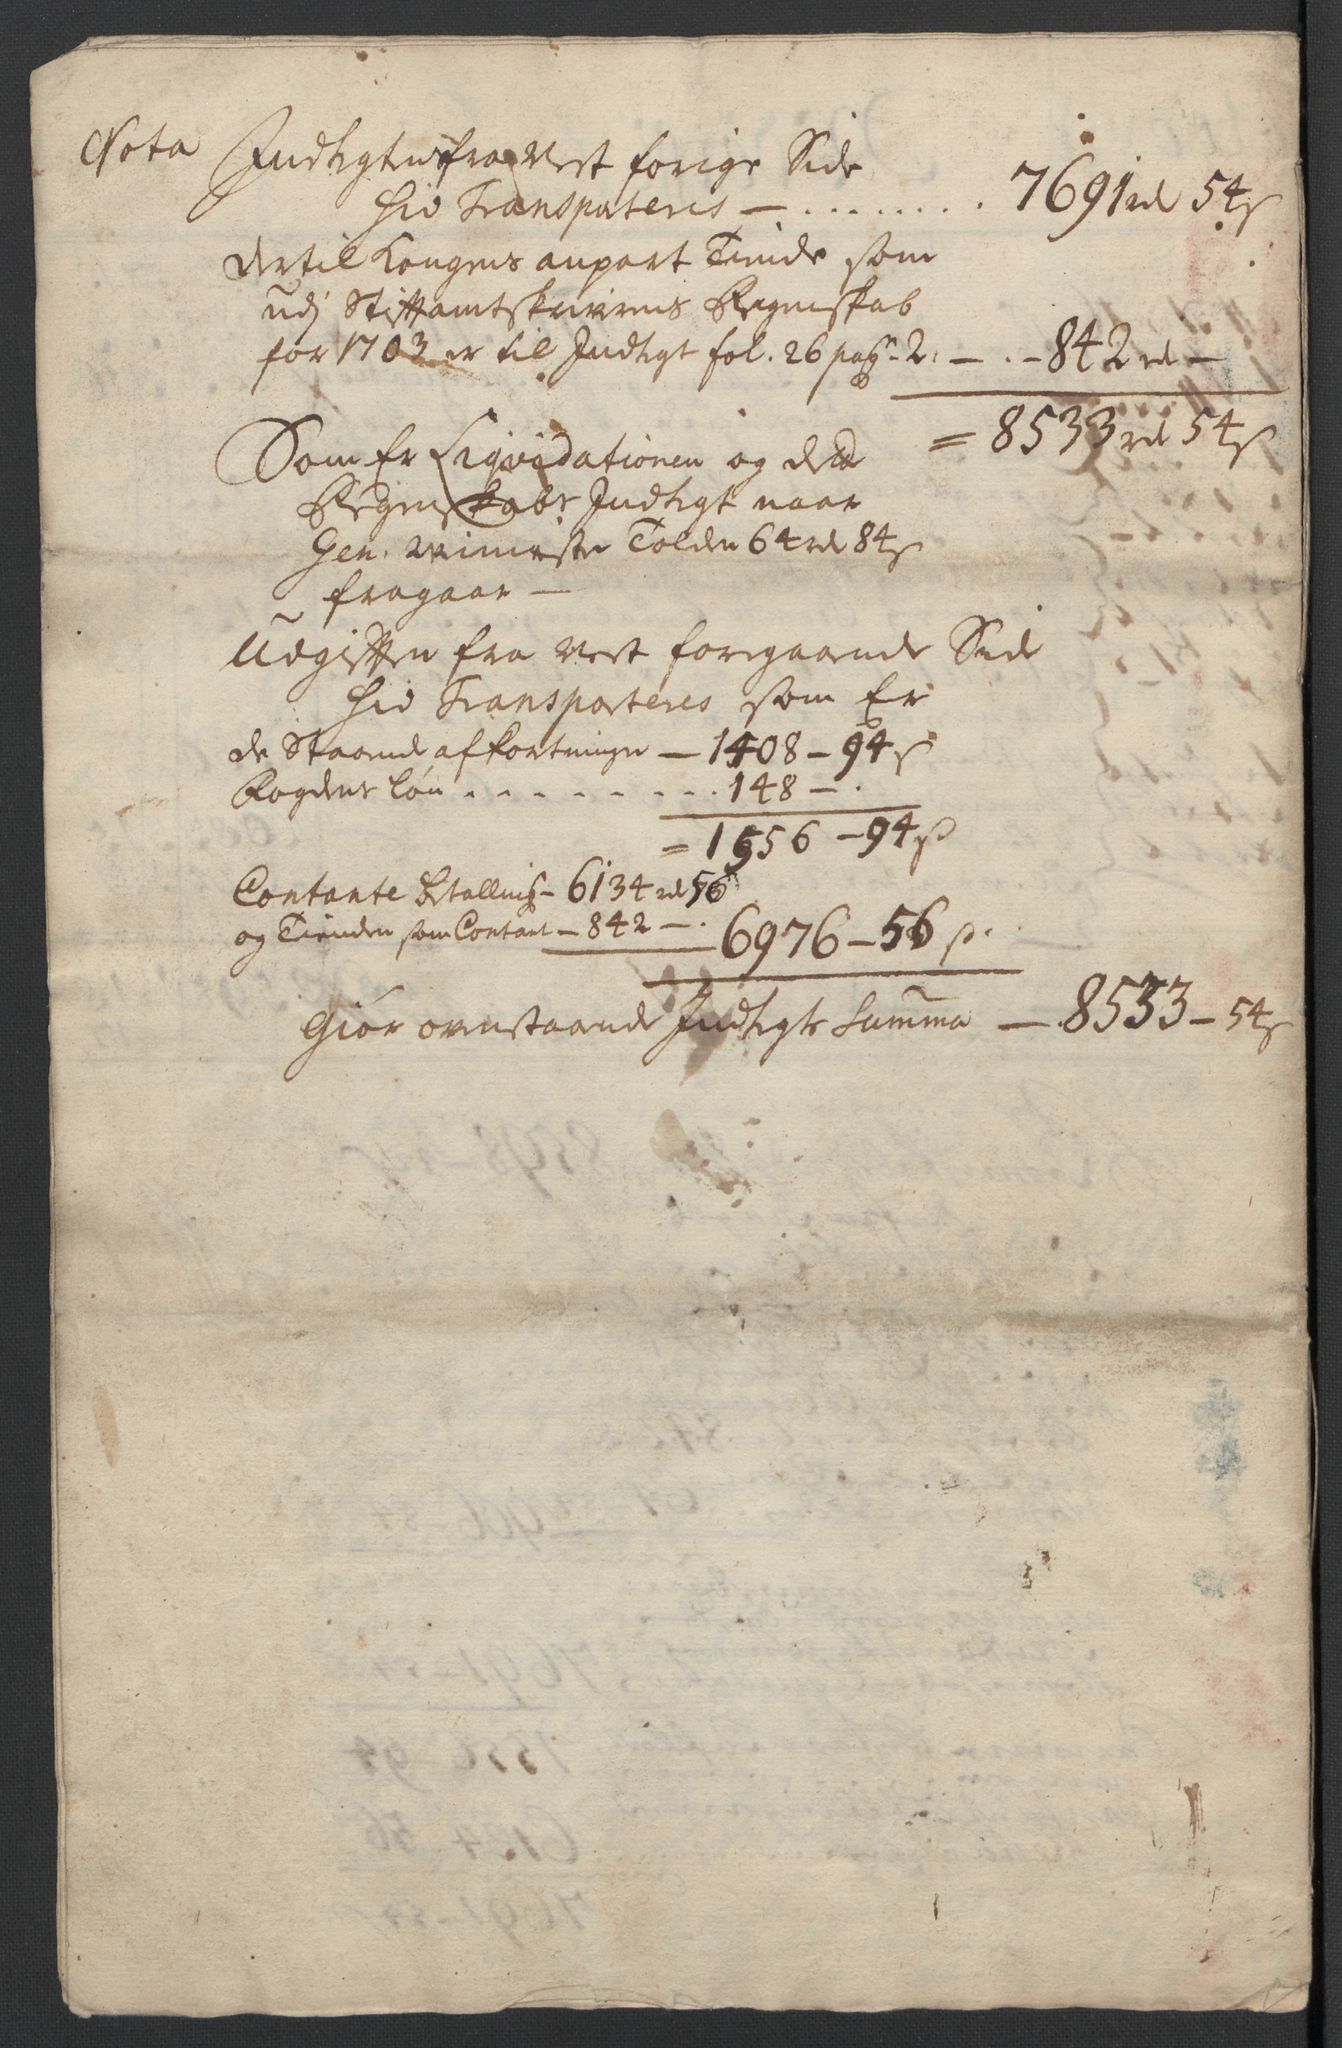 Nota Indtegten fra Nest forige Side
hid Transporteris — . . . . . . . . 7691 rd 54 s
Dertil Kongens anpart Tiende som
udj Stiftamtskrifvens Regenskab
for 1703 er til Indtegt fol. 26 pag 2. — . – 842 rd —
= 8533 rd 54 s
Som Er Liqvidationen og dend
Regenskabs Indtegt naar
Gen. Tolden 64 rd 84 s
fragaar —
Udgiften fra Nest foregaaende Side
hid Transporteres som Er
de Staaende afkortninger — 1408 – 94 s
Fogdens løn . . . . . . . . . 148 — .
= 1556 – 94 s
Contante betalling – 6134 rd 56
og Tienden som Contant – 842 — . 6976 – 56 s.
Giør ovenstaaende Indtegts Summa — 8533 – 54 s